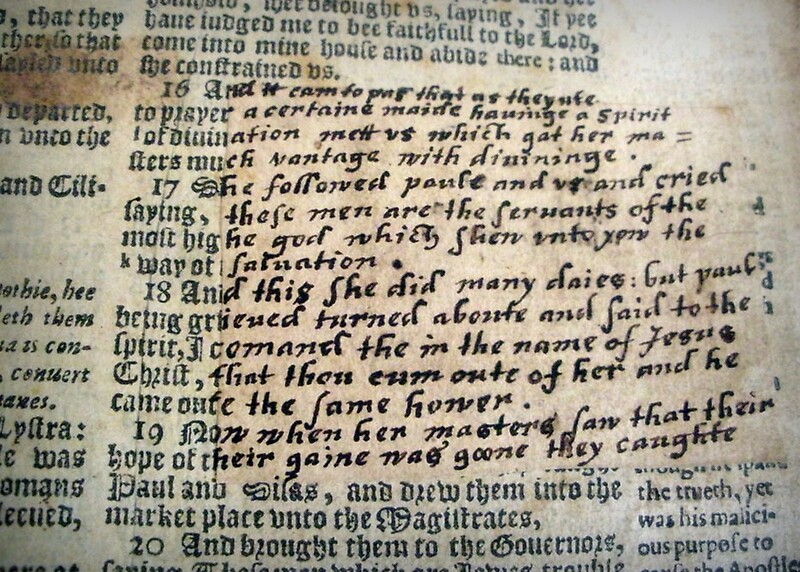 , that they
ther, so that
vnto
departed,
n vnto the
and Cili-
othie, hee
eth them
as con-
, conuert
Lystra:
e was
omans
besought vs, saying, If yee
haue iudged me to bee faithfull to the Lord,
come into mine house and abide there: and
she constrained vs.
16 And it cam to pas that as they
to prayer a certaine maide hauinge a spirit
of diuination mett vs which gat her ma =
sters much vantage with diuininge.
17 She followed paule and vs and cried
saying, these men are the seruants of the
most highe god which shew vnto yow the
way of saluation.
18 And this she did many daies: but paul
being grieued turned aboute and said to the
spirit, I comand the in the name of Jesus
Christ, that thou cum oute of her and he
came oute the same hower.
19 Now when her masters saw that their
hope of their gaine was goone they caughte
Paul and Silas, and drew them into the
market place vnto the Magistrates,
20 And brought them to the Gouernors,
the trueth, yet
was his malici-
ous purpose to